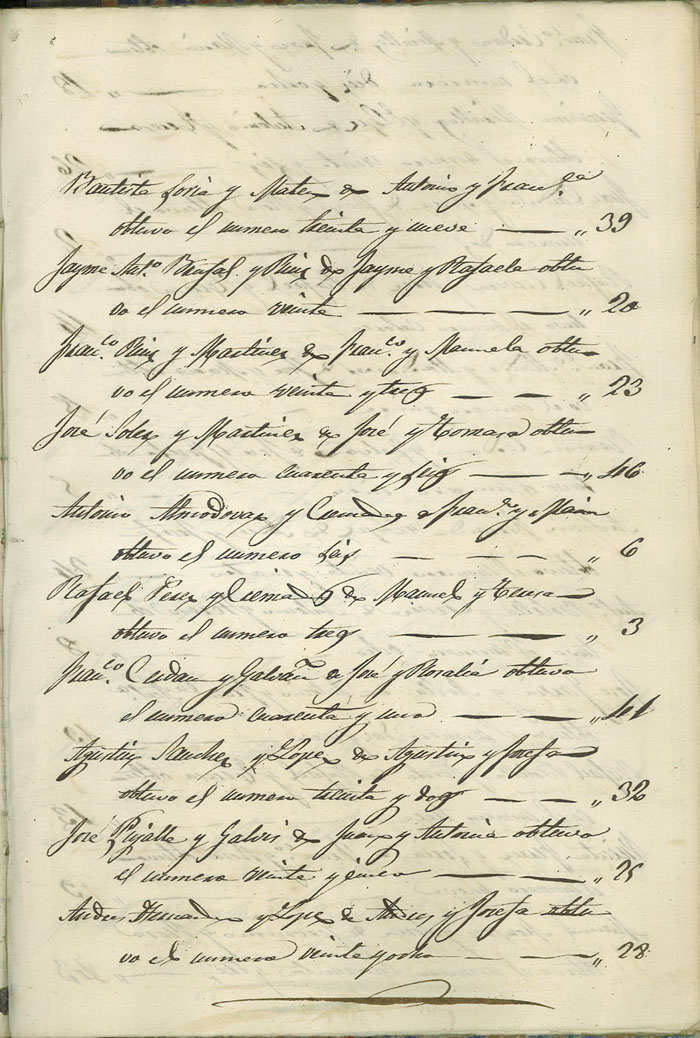 Bautista Soria y Mateo de Antonio y Fran.ca
obtuvo el numero treinta y nueve — „ 39
Jayme Ant.o y Ruiz de Jayme y Rafaela obtu
vo el numero veinte — — — — „ 20
Fran.co Ruiz y Martinez de Fran.co y Manuela obtu-
vo el numero veinte y tres — — — „ 23
José Soler y Martinez de José y Tomasa obtu-
vo el numero cuarenta y seis — — „ 46
Antonio Almodovar y de Fran.co y Maria
obtuvo el numero seis — — — „ 6
Rafael Perez y de Manuel y Teresa
obtuvo el numero tres — — — „ 3
Fran.co y Galvañ de José y Rosalia obtuvo
el numero cuarenta y uno — — — „ 41
Agustin Sanchez y Lopez de Agustin y Josefa
obtuvo el numero treinta y dos — — „ 32
José Pujalte y Galvis de Juan y Antonia obtuvo
el numero veinte y cinco — — — „ 25
Andres Hernandez y Lopez de Andres y Josefa obtu
vo el numero veinte y ocho — — „ 28